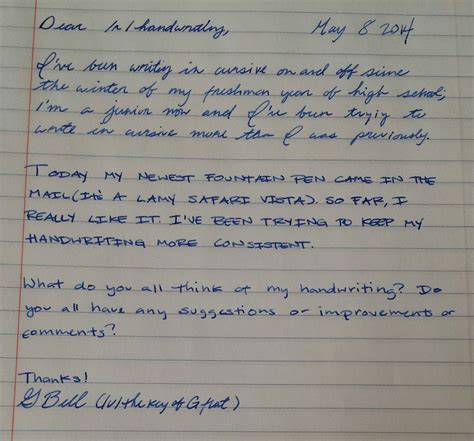 Dear /r/handwriting, May 8 2014
I've been writing in cursive on and off since
the winter of my freshman year of high school;
I'm a junior now and I've been tryig to
write in cursive more than I was previously.
TODAY MY NEWEST FOUNTAIN PEN CAME IN THE
MAIL (IT'S A LAMY SAFARI VISTA). SO FAR, I
REALLY LIKE IT. I'VE BEEN TRYING TO KEEP MY
HANDWRITING MORE CONSISTENT.
What do you all think of my handwriting? Do
you all have any suggestions or improvements or
comments?
Thanks!
G Bell (/u/the key of G flat)